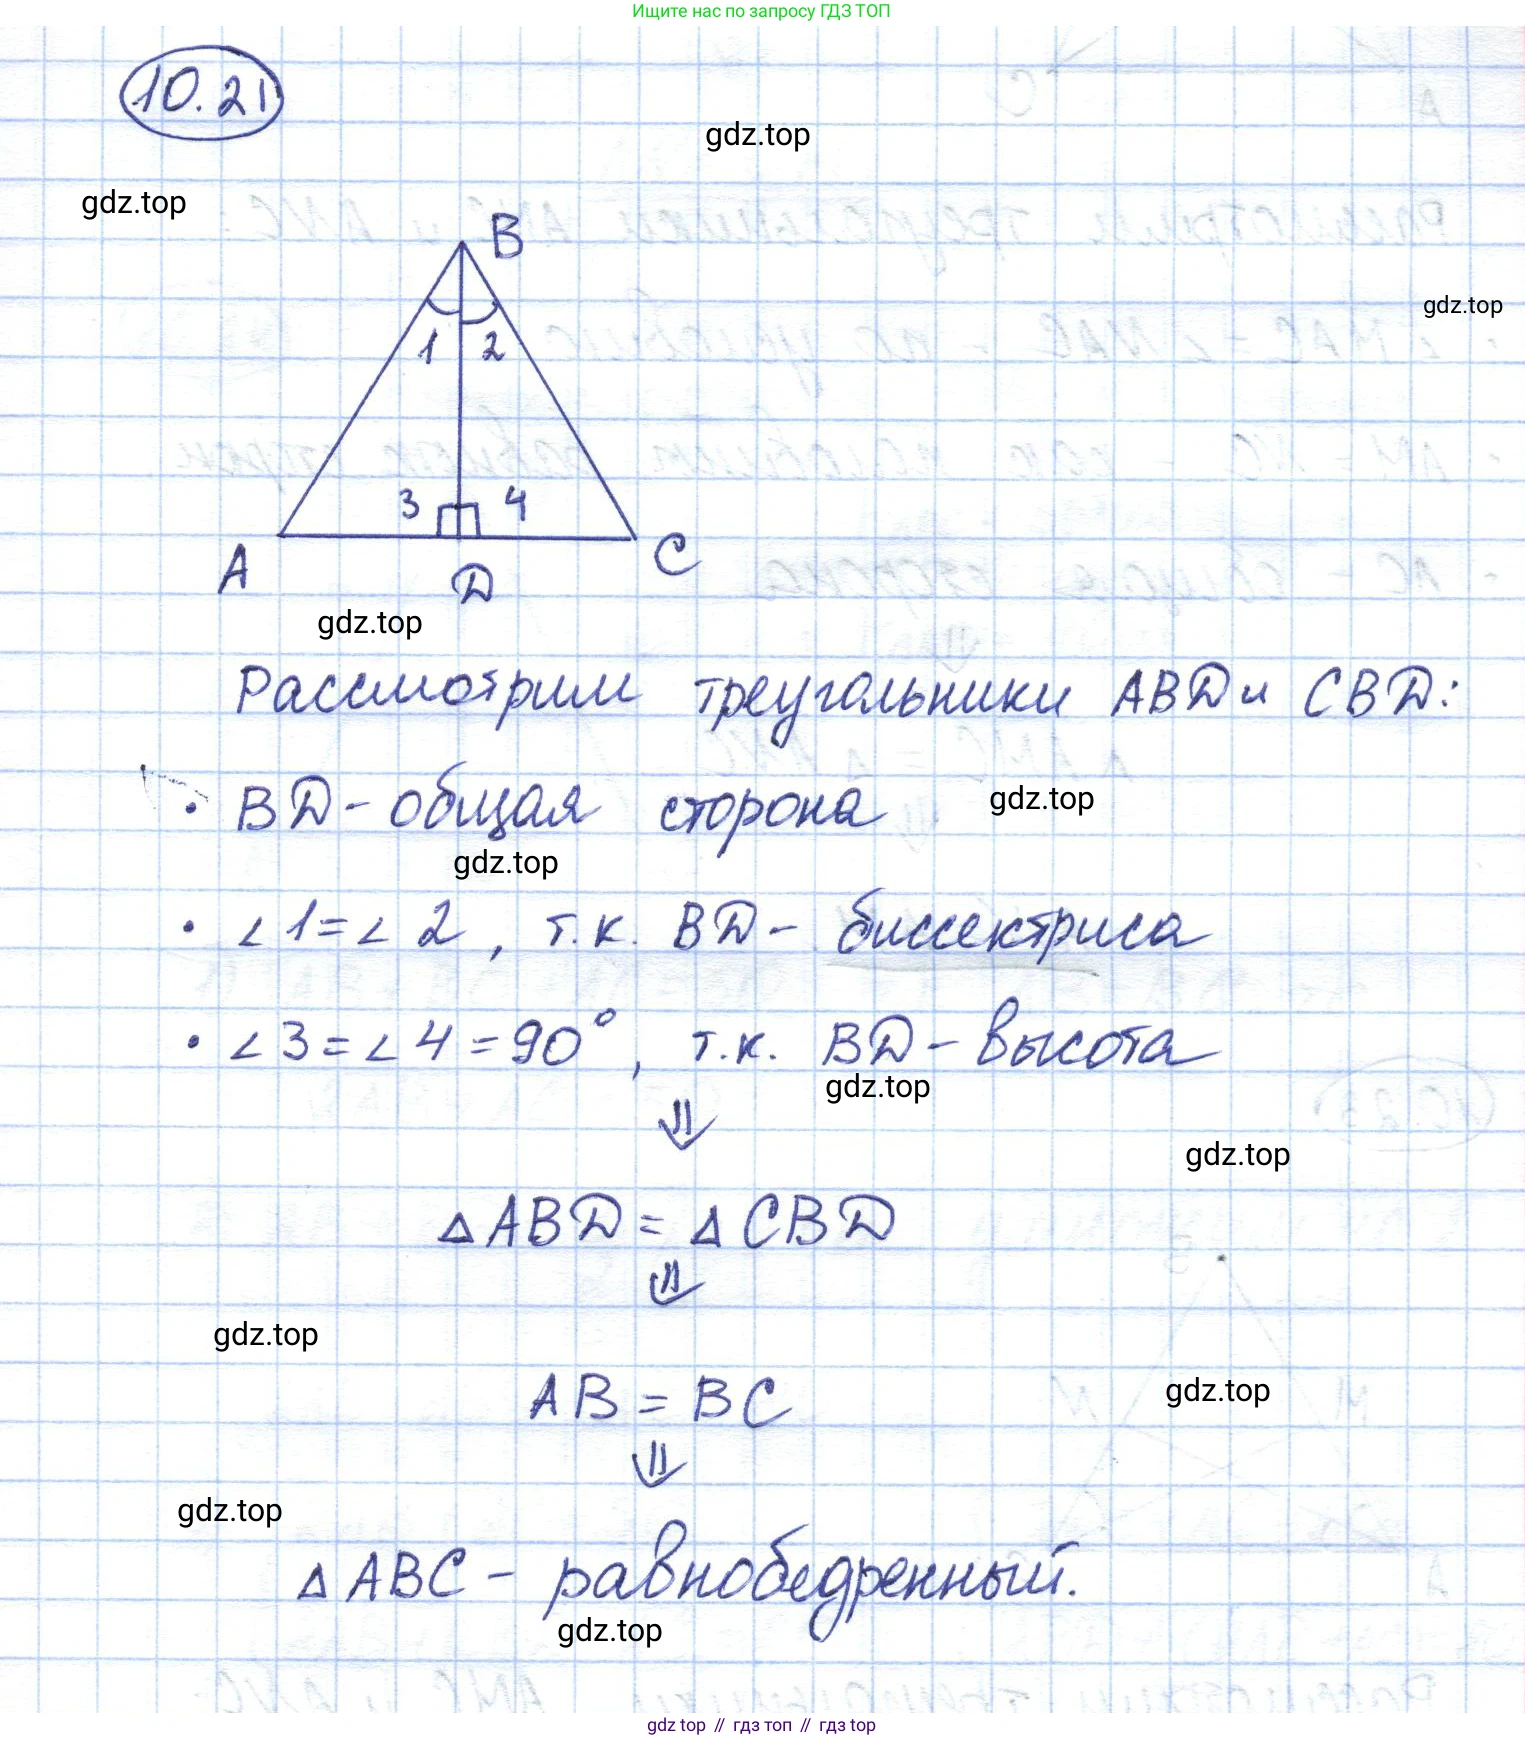 Ищите нас по запросу ГДЗ ТОП
10.21
gdz.top
gdz.top
B
gdz.top
1 2
3 4
A D C
gdz.top
Рассмотрим треугольники ABD и CBD:
• BD - общая сторона
gdz.top
gdz.top
• ∠1 = ∠2, т.к. BD - биссектриса
• ∠3 = ∠4 = 90°, т.к. BD - высота
gdz.top
⇓
gdz.top
△ABD = △CBD
⇓
gdz.top
AB = BC
gdz.top
⇓
gdz.top
△ABC - равнобедренный.
gdz.top
gdz top // гдз топ // гдз top